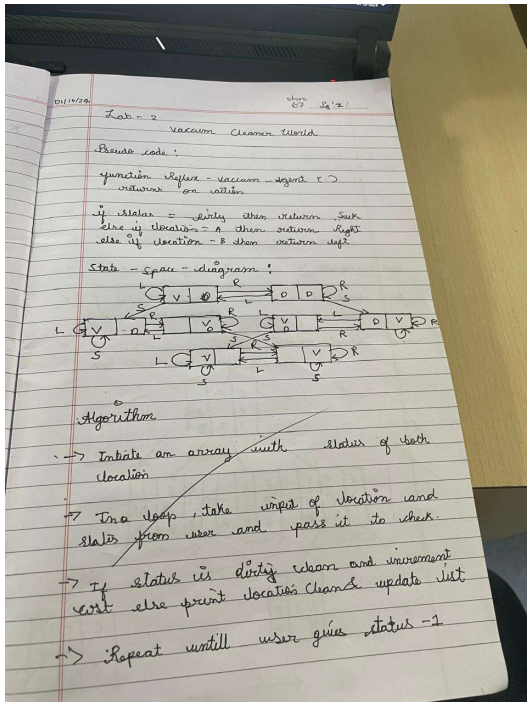 01/10/24
Lab - 2
Vaccum Cleaner World
Pseudo code :
function Reflex - vaccum - agent ( )
returns an action
if status = Dirty then return Suck
else if location = A then return Right
else if location - B then return left
State - space - diagram :
L V D R L D D R
S S
L V D R L V D R L V D L R D V R
S S
L V R L V R
S S
Algorithm
-> Intiate an array with status of both
location
-> In a loop , take input of location and
status from user and pass it to check.
-> If status is dirty clean and increment
cost else print location Clean & update list
-> Repeat untill user gives status -1